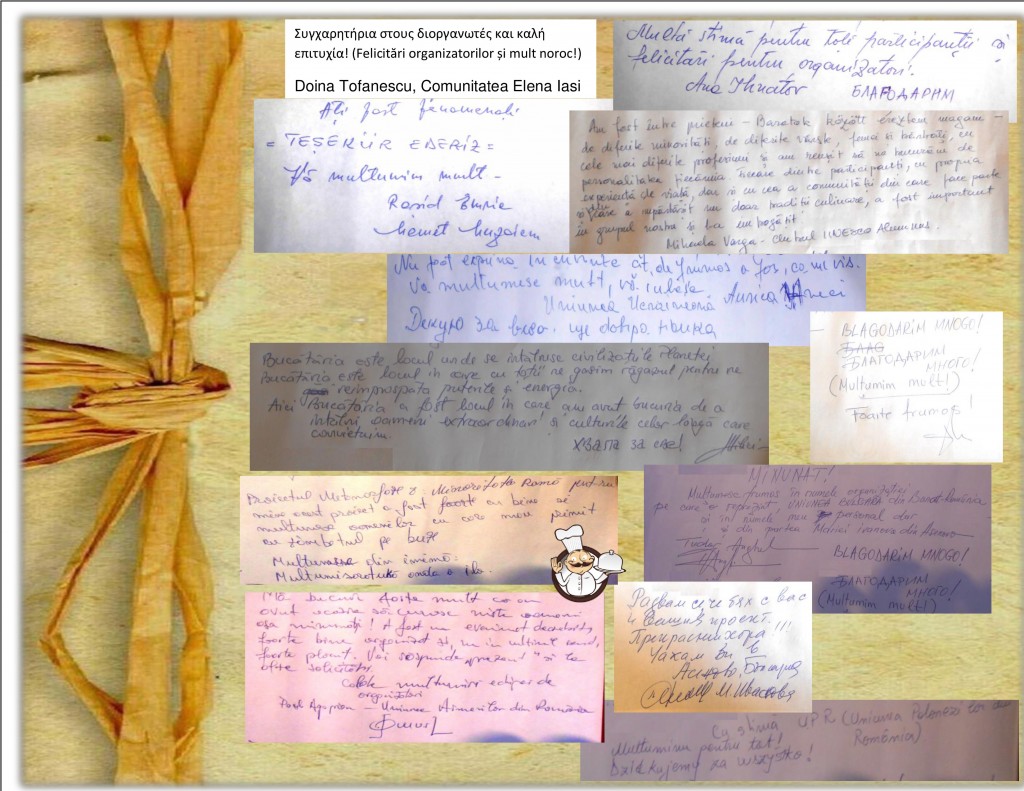 Συγχαρητήρια στους διοργανωτές και καλή
επιτυχία! (Felicitări organizatorilor și mult noroc!)
Doina Tofanescu, Comunitatea Elena Iasi
Multă stimă pentru toți participanții și
felicitări pentru organizatori.
Ana Ihnatov БЛАГОДАРИМ
Ați fost fenomenali
= TEȘEKÜR EDERIZ =
Vă mulțumim mult -
Rașid Emrie
Memet
Am fost între prieteni - Barátok között éreztem magam -
de diferite minorități, de diferite vârste, femei și bărbați, cu
cele mai diferite profesiuni și am reușit să ne bucurăm de
personalitatea fiecărui dintre participanți, cu propria
experiență de viață, dar și cu cea a comunității din care face parte
și care a împărtășit nu doar tradiții culinare, a fost important
în grupul nostru și l-a îmbogățit
Mihaela Varga - Clubul UNESCO Alumnus.
Nu pot exprima în cuvinte cât de frumos a fos, ca un vis.
Vă mulțumesc mult, vă iubesc
Uniunea Ucraineană Aurica
Дякую за
Bucătăria este locul unde se întâlnesc civilizațiile Planetei
Bucătăria este locul în care cu toții ne găsim răgazul pentru ne
reîmprospăta puterile și energia.
Aici Bucătăria a fost locul în care am avut bucuria de a
întâlni oameni extraordinari și culturile celor lângă care
conviețuim.
ХВАЛА ЗА СВЕ!
BLAGODARIM MNOGO!
БЛАГ
БЛАГОДАРИМ
МНОГО!
(Mulțumim mult!)
Foarte frumos!
Proiectul Metamorfoze Minoritatea Romă pentru
mine acest proiect a fost foarte cu bine și
mulțumesc oamenilor cu care m-au primit
cu zîmbetul pe buze
Mulțumesc din inimă:
MINUNAT!
Mulțumesc frumos în numele organizației
pe care o reprezint, UNIUNEA BULGARĂ din Banat-România
și în numele meu personal dar
și din partea Mariei Ivanov din
Tudor Anghel
BLAGODARIM MNOGO!
БЛАГОДАРИМ
МНОГО!
(Mulțumim mult!)
Mă bucur foarte mult că am
avut ocazia să cunosc niște oameni
așa minunați! A fost un eveniment deosebit,
foarte bine organizat și, nu în ultimul rând,
foarte plăcut. Voi răspunde „prezent" și la
alte solicitări.
Calde mulțumiri echipei de
organizatori
Uniunea Armenilor din România
Радвам се че бях с вас
в Вашия проект.
Прекрасни хора !!!
Чакам ви в
България
М. Иванова
Cu stimă UPR (Uniunea Polonezilor din
România)
Mulțumim pentru tot!
Dziękujemy za wszystko!